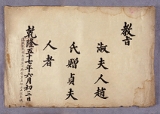 教旨
淑夫人趙
氏贈貞夫
人者
乾隆五十七年六月初二日